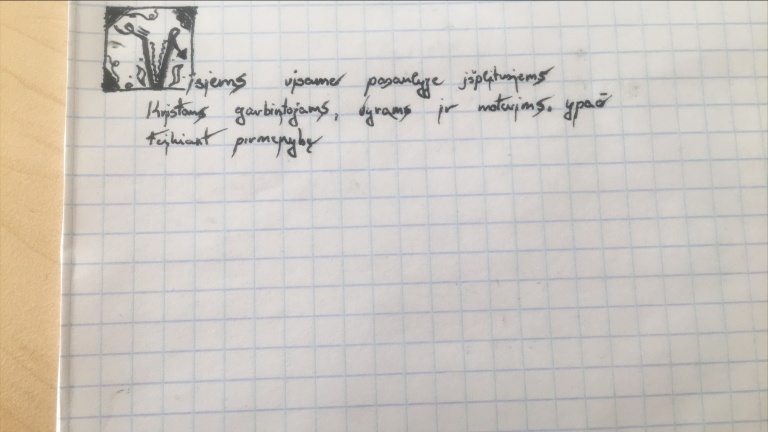 Visiems visame pasaulyje išplitusiems
Kristaus garbintojams, vyrams ir moterims. ypač
teikiant pirmenybę